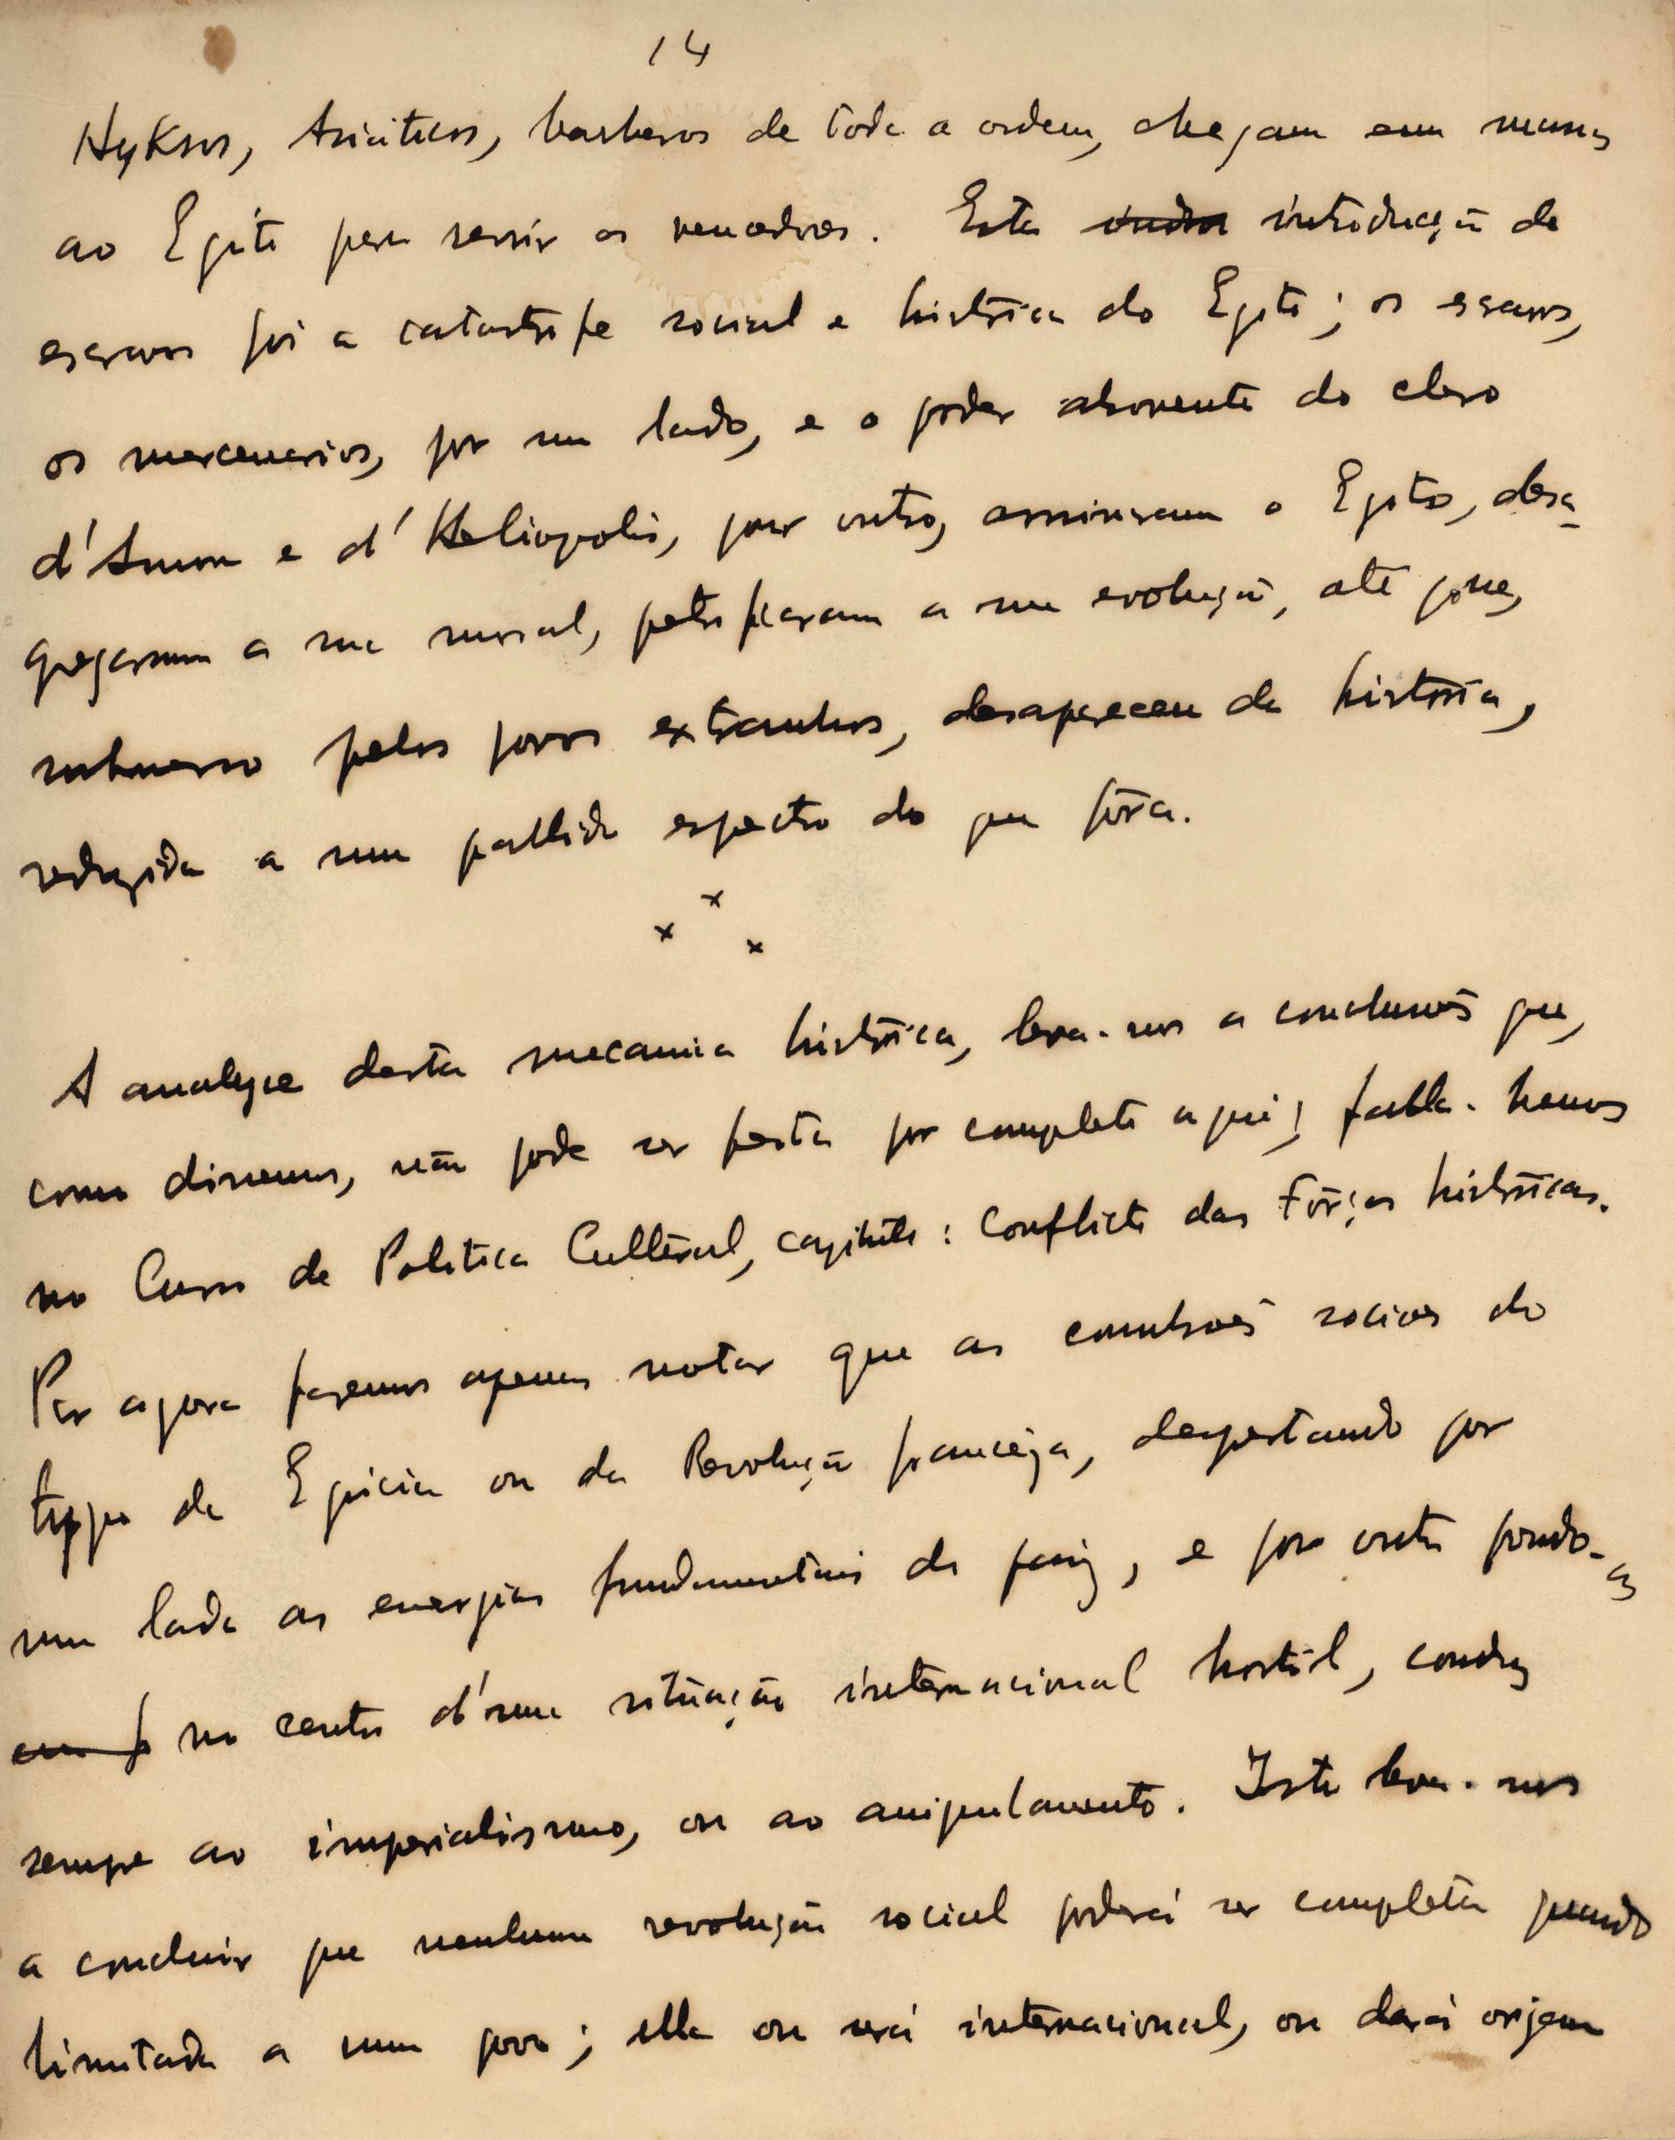 14
Hyksos, Asiaticos, barbaros de toda a ordem, chegam em massa
ao Egito para servir os vencedores. Esta introducção de
escravos foi a catastrofe social e histórica do Egito; os escravos,
os mercenarios, por um lado, e o poder absorvente do clero
d'Amon e d'Heliopolis, por outro, arruinaram o Egito, desa-
gregaram a sua moral, petrificaram a sua evolução, até que,
submerso pelos povos extranhos, desapareceu da história,
reduzida a um pallido espectro do que fôra.
x x x
A analyse desta mecanica histórica, leva-nos a conclusões que,
como dissemos, não pode ser feita por completo aqui; falla-hemos
no Curso de Politica Cultural, capitulo: Conflicto das Fôrças históricas.
Por agora fazemos apenas notar que as convulsões sociaes do
typpo da Egipcia ou da Revolução francêza, despertando por
um lado as energias fundamentais do paiz, e por outro pondo-as
no centro d'uma situação internacional hostil, conduz
sempre ao imperialismo, ou ao aniquilamento. Isto leva-nos
a concluir que nenhuma revolução social poderá ser completa quando
limitada a um povo; ella ou será internacional, ou dará origem